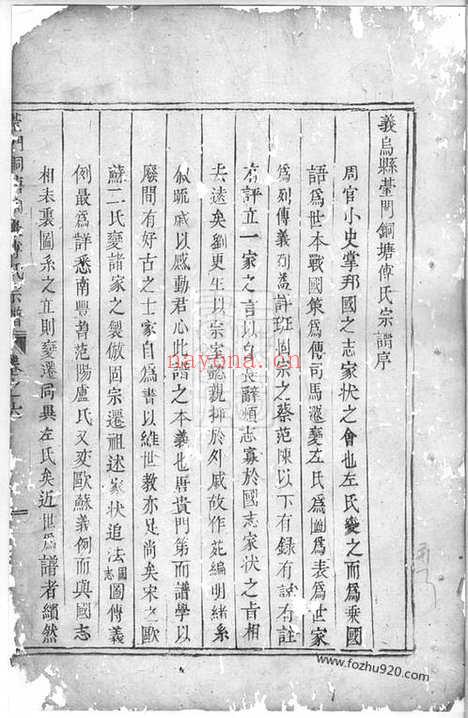 義烏縣墓門銅塘傅氏宗譜序
周官小史掌邦國之志家状之會也左氏變之而為乗國
語為世本戰國策為傅司馬遷變左氏為圖為表為世家
為列傳義例益詳班固宗之蔡范陳以下有録有註
有評立一家之言以自辭煩志寡於國志家状之旨相
去逺矣劉更生以宗室懿親排於外戚故作苑編明緒系
叙疏戚以感動君心此譜之本義也唐貴門第而譜學以
廢間有好古之士家自為書以維世教亦足尚矣宋之歐
蘇二氏變諸家之製倣固宗遷祖述家状追法圖志圖傳義
例最為詳悉南豐曾范陽盧氏又変歐蘇義例而與國志
相表裏圖系之立則變遷同異左氏矣近世為譜者纉然
門銅塘傅氏宗譜 卷之
www.fozhu920.com
nayona.cn